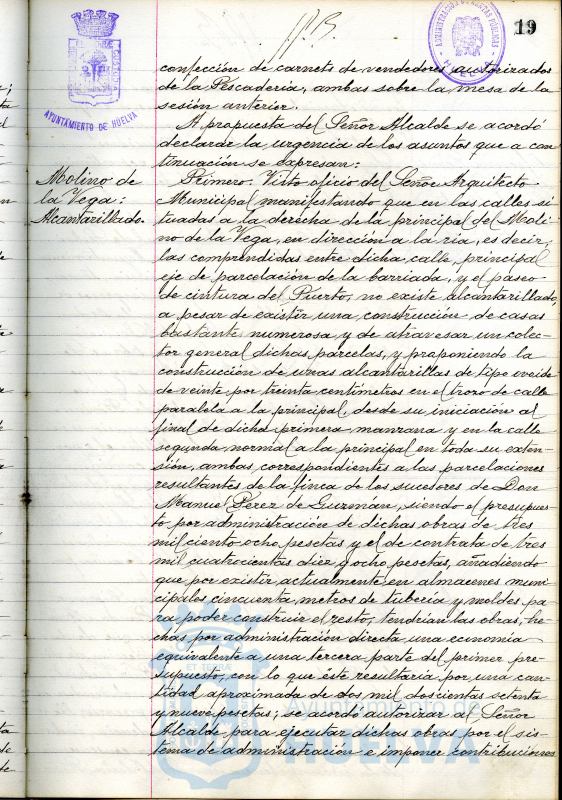 19
AYUNTAMIENTO DE HUELVA
HUELVA
confección de carnets de vendedores autorizados
de la Pescadería, ambas sobre la mesa de la
sesión anterior.
A propuesta del Señor Alcalde se acordó
declarar la urgencia de los asuntos que a con-
tinuación se expresan:
Molino de
la Vega:
Alcantarillado.
Primero. Visto oficio del Señor Arquitecto
Municipal manifestando que en las calles si-
tuadas a la derecha de la principal del Moli-
no de la Vega, en dirección a la ria, es decir,
las comprendidas entre dicha calle, principal
eje de parcelación de la barriada, y el paseo
de cintura del Puerto, no existe alcantarillado,
a pesar de existir una construcción de casas
bastante numerosa y de atravesar un colec-
tor general dichas parcelas, y proponiendo la
construcción de unas alcantarillas de tipo ovoide
de veinte por treinta centímetros en el trozo de calle
paralela a la principal, desde su iniciación al
final de dicha primera manzana y en la calle
segunda, normal a la principal en toda su exten-
sión, ambas correspondientes a las parcelaciones
resultantes de la finca de los sucesores de Don
Manuel Perez de Guzmán, siendo el presupues-
to por administración de dichas obras de tres
mil ciento ocho pesetas y el de contrata de tres
mil cuatrocientas diez y ocho pesetas, añadiendo
que por existir actualmente en almacenes muni-
cipales cincuenta metros de tubería y moldes pa-
ra poder construir el resto, tendrían las obras, he-
chas por administración directa una economía
equivalente a una tercera parte del primer pre-
supuesto, con lo que éste resultaria por una can-
tidad aproximada de dos mil doscientas setenta
y nueve pesetas; se acordó autorizar al Señor
Alcalde para ejecutar dichas obras por el sis-
tema de administración e imponer contribuciones
Ayuntamiento de